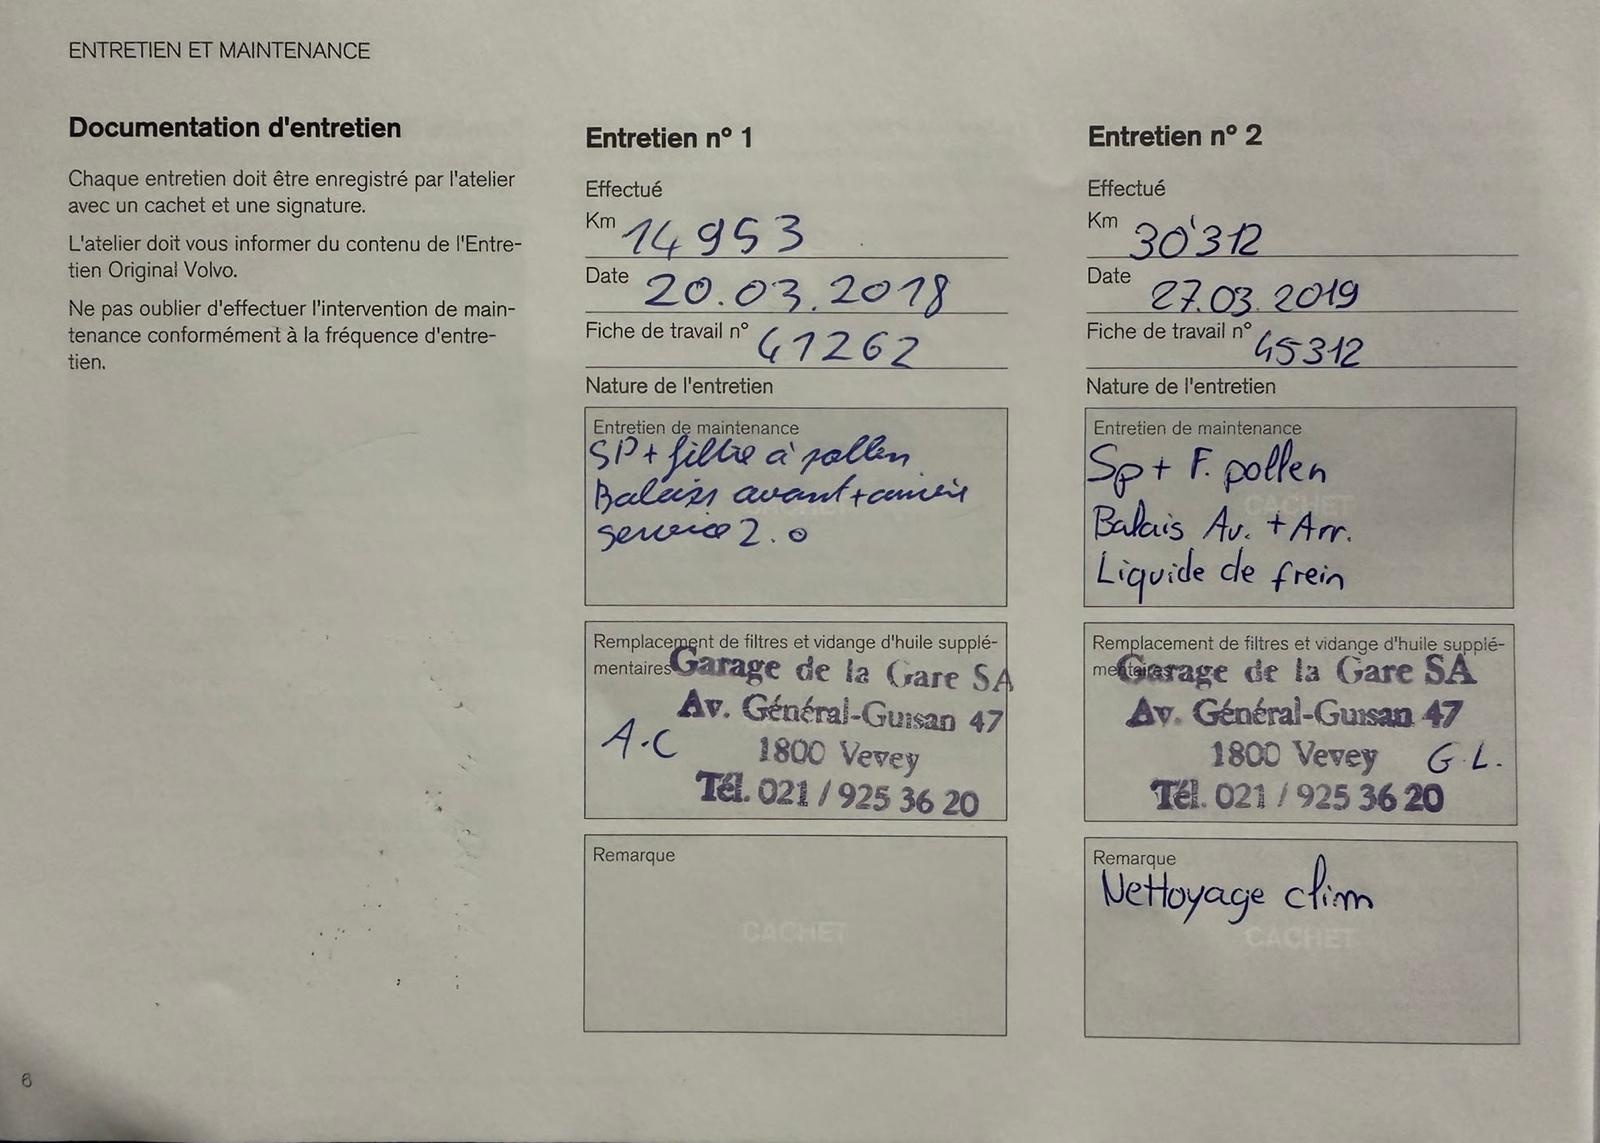 ENTRETIEN ET MAINTENANCE
Documentation d'entretien
Chaque entretien doit être enregistré par l'atelier
avec un cachet et une signature.
L'atelier doit vous informer du contenu de l'Entre-
tien Original Volvo.
Ne pas oublier d'effectuer l'intervention de main-
tenance conformément à la fréquence d'entre-
tien.
Entretien n° 1
Effectué
Km 14953
Date 20.03.2018
Fiche de travail n° 41262
Nature de l'entretien
Entretien de maintenance
SP + filtre à pollen
Balais avant + arrière
service 2.0
Remplacement de filtres et vidange d'huile supplé-
mentaires
Garage de la Gare SA
Av. Général-Guisan 47
A.C 1800 Vevey
Tél. 021 / 925 36 20
Remarque
CACHET
Entretien n° 2
Effectué
Km 30'312
Date 27.03.2019
Fiche de travail n° 45312
Nature de l'entretien
Entretien de maintenance
Sp + F. pollen
CACHET
Balais Av. + Arr.
Liquide de frein
Remplacement de filtres et vidange d'huile supplé-
mentaires
Garage de la Gare SA
Av. Général-Guisan 47
1800 Vevey G.L.
Tél. 021 / 925 36 20
Remarque
Nettoyage clim
CACHET
6